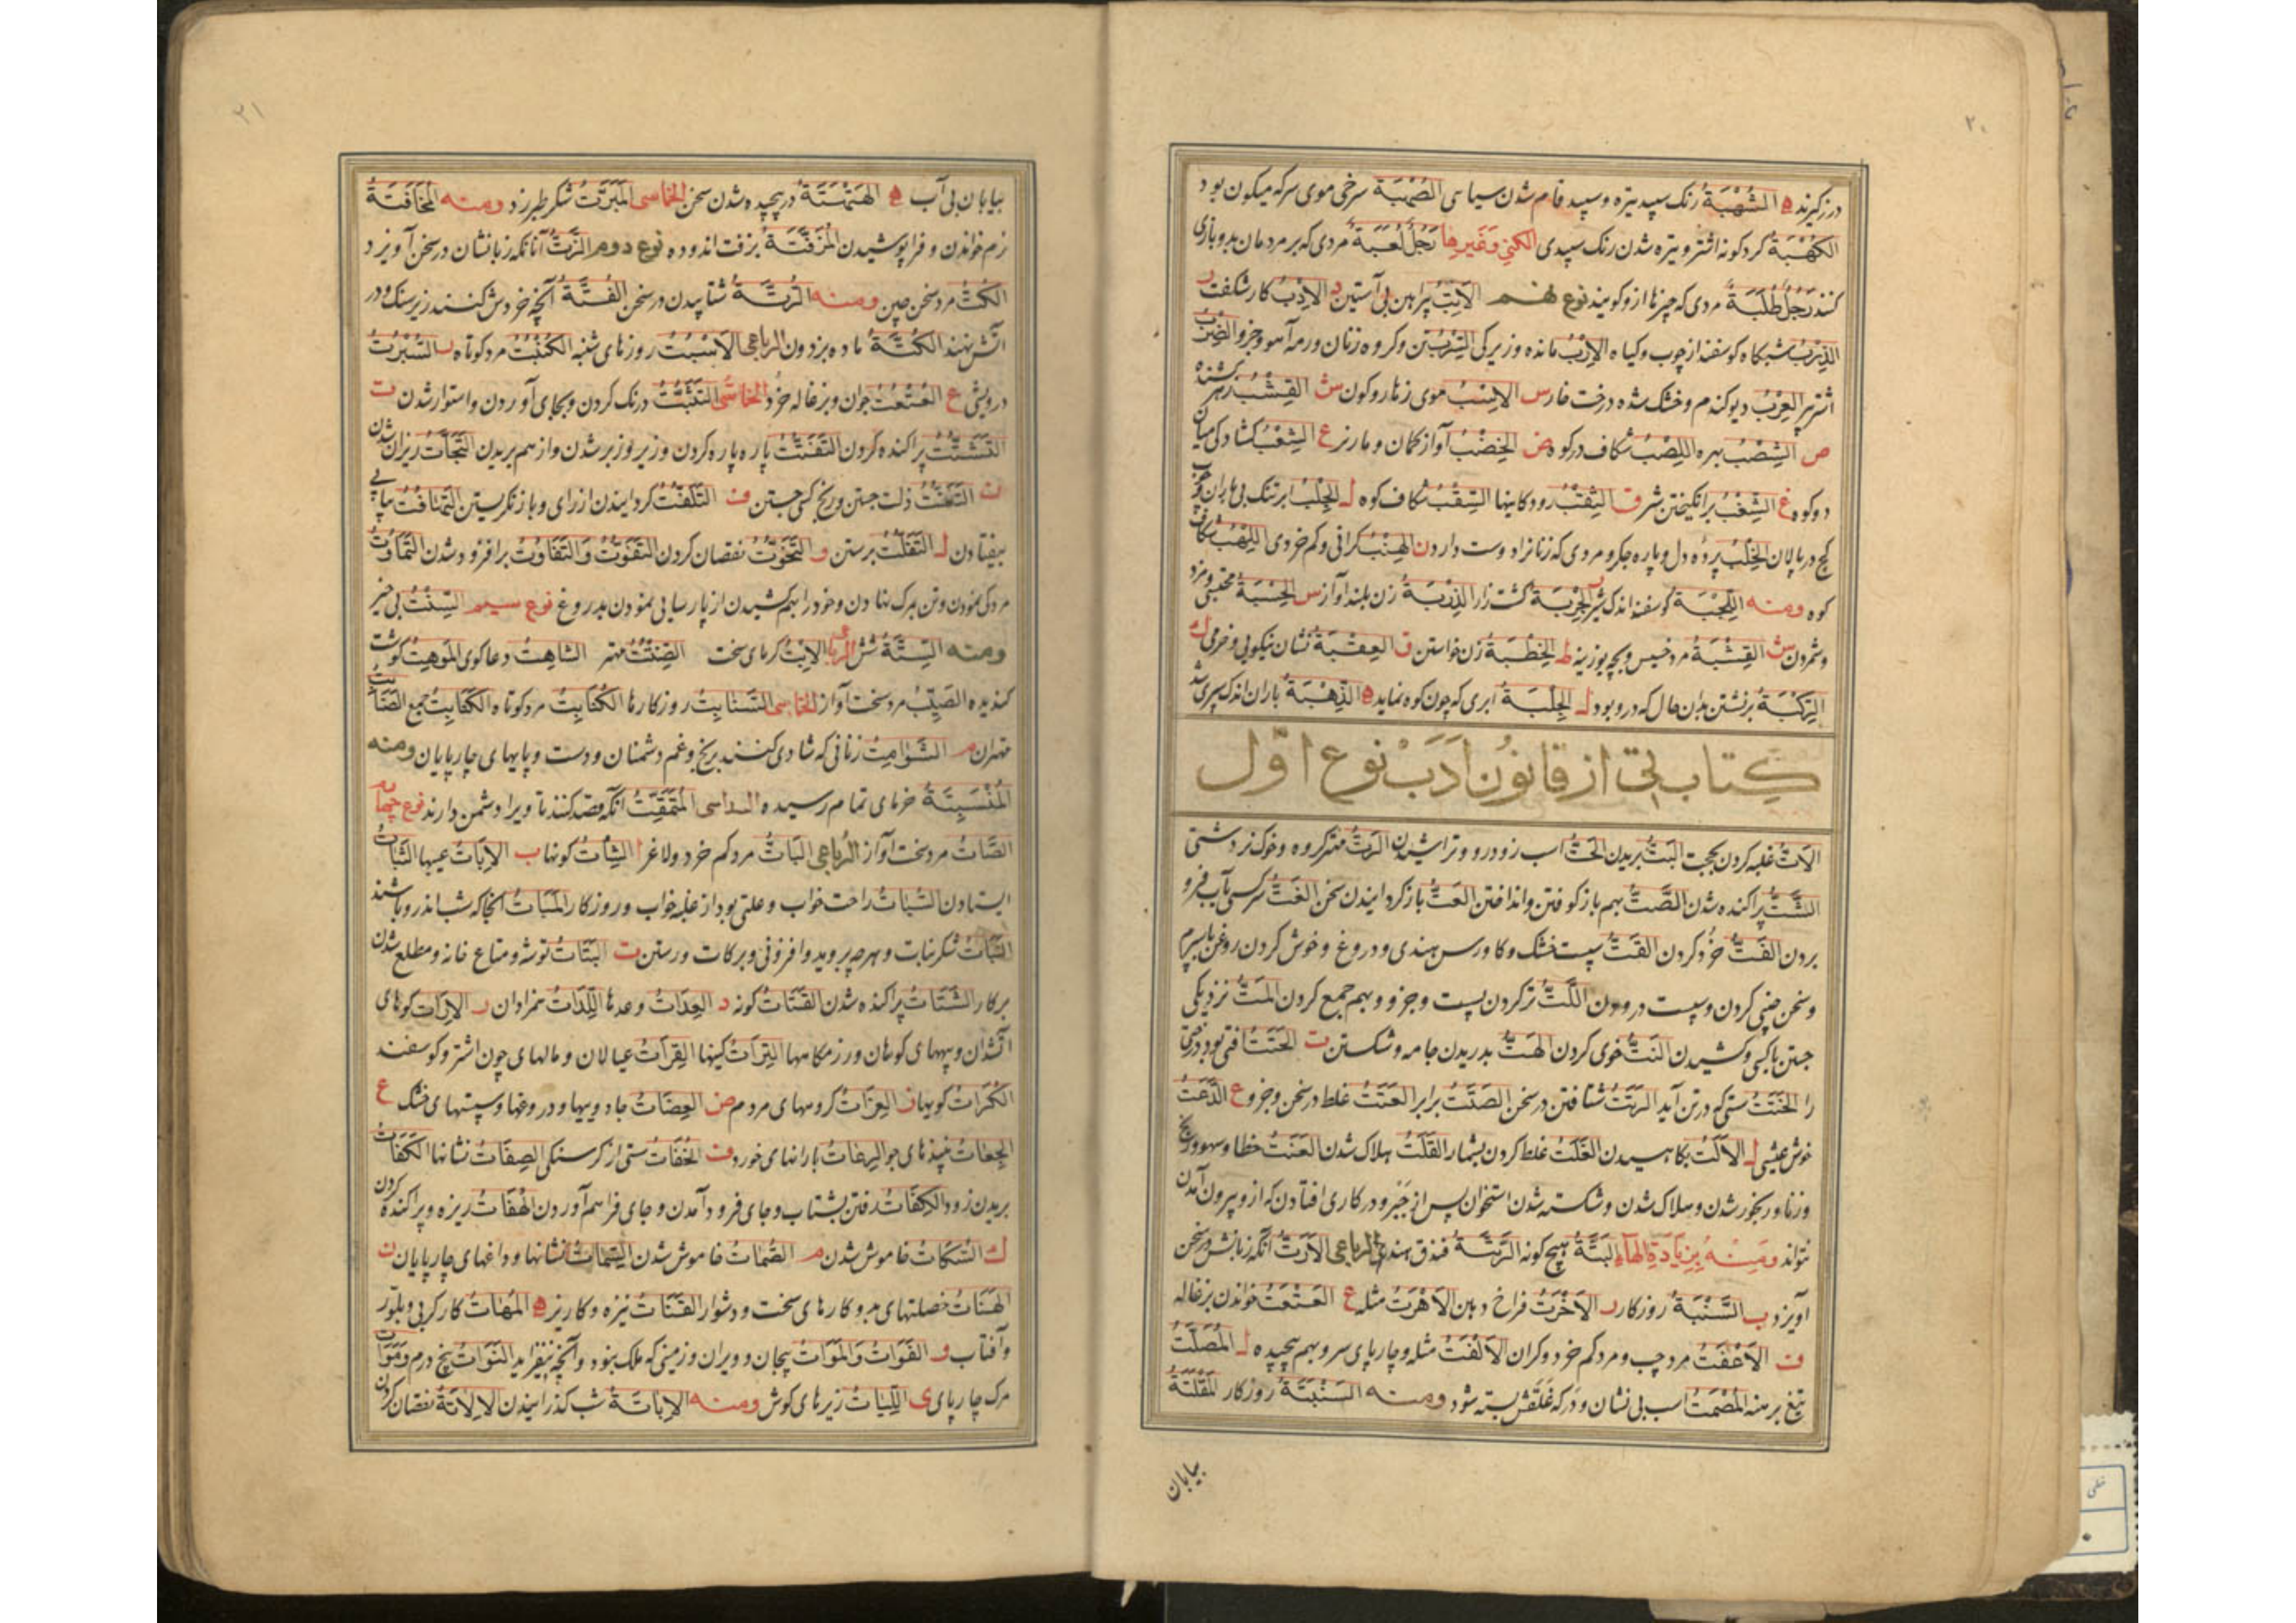 ۲۰
درزگیرند ه الشُّهْبَةُ رنک سپید تیره و سپید فام شدن سیاهی الصُّهْبَةُ سرخی موی سر که میکون بود
الکُهْبَةُ کردکونه اشتر و تیره شدن رنک سپیدی الکنی وَغَیرها رَجُلٌ لُعَبَةٌ مردی که بر مردمان بد و بازی
کنند رَجُلٌ طُلَبَةٌ مردی که چیزها ازو کویند نوع نهم الاِتْبُ پیراهن بی آستین د الاِدْبُ کار شکفت ر
الزِّرْبُ شبکاه کوسفند از چوب و کیاه الاِرْبُ مانده و زیرکی السِّرْبُ تن و کروه زنان و رمه آهو وجزو
اشتر نر العِرْبُ دیو کندم و خشک شده درخت خار س الاِسْبُ موی زهار و کون ش القِشْبُ زهر کشنده
ص الشِّصْبُ بهره اللِّصْبُ شکاف در کوه ض الخِضْبُ آواز کمان و مار نر ع الشِّعْبُ کشادکی میان
دو کوه غ الشِّغْبُ برانکیختن شر ق الثِّقْبُ رودکاینها السِّقْبُ شکاف کوه ل الجِلْبُ ابر تنک بی باران و چوب
کج در پالان الخِلْبُ پرده دل و پاره جکر و مردی که زنانرا دوست دارد ن الهِنْبُ کرانی و کم خردی اللِّهْبُ شکاف
کوه ومنه اللِّجْبَةُ کوسفند اندک شیر ر الجِرْبَةُ کشت زار الذِّرْبَةُ زن بلند آواز س الحِسْبَةُ محتسبی و مزد
و شمردن ش القِشْبَةُ مرد خسیس و بچه بوزینه ط الخِطْبَةُ زن خواستن ق العِقْبَةُ نشان نیکویی و خرمی ک
الرِّکْبَةُ برنشتن بدان حال که درو بود ل الجِلْبَةُ ابری که چون کوه نماید ه الذِّهْبَةُ باران اندک سپری شد
کتاب التّی از قانون ادب نوع اوّل
الاَتُّ غلبه کردن بحجت البَتُّ بریدن الحَتُّ اسب زودرو و تراشیدن الرَتُّ مهتر کروه و خوک نر دشتی
الشَّتُّ پراکنده شدن الصَّتُّ بهم باز کوفتن و انداختن العَتُّ باز کردانیدن سخن الغَتُّ سر کسی بآب فرو
بردن الفَتُّ خُرد کردن القَتُّ سپست خشک و کاورس هندی و دروغ و خوش کردن روغن باسپرم
و سخن چینی کردن و سپست درودن اللَّتُّ تر کردن پست و جزو و بهم جمع کردن المَتُّ نزدیکی
جستن باکسی و کشیدن النَتُّ خوی کردن الهَتُّ بدریدن جامه و شکستن ت الحَتَتُ افتی بود درختی
را الخَتَتُ ستی که در تن آید الرَتَتُ شتافتن در سخن الصَتَتُ برابر العَتَتُ غلط در سخن و جزو ع الدَّعَتُ
خوش عیشی ل الاَلَتُ بکاهیدن الغَلَتُ غلط کردن بشمار القَلَتُ هلاک شدن العَنَتُ خطا و سهو و رنج
و زنا و رنجور شدن و هلاک شدن و شکسته شدن استخوان پس از جَبر و در کاری افتادن که ازو بیرون آمدن
نتواند ومِنْهُ بِزِیَادَةِ الهَاءِ البَتَّةُ هیچ کونه الرَّتَّةُ فندق هندی الرباعی الاَرَتُّ انکه زبانش در سخن
آویزد ب السَّنْبَةُ روزکار ر الاَخْرَتُ فراخ دهن الاَهْرَتُ مثله ع العَتْعَتُ خواندن بزغاله
ف الاَعْفَتُ مرد چپ و مرد کم خرد و کران الاَلْفَتُ مثله و چارپای سرو بهم پیچیده ل المُصْلَتُ
تیغ برهنه المُصْمَتُ اسب بی نشان و درکه غَلَقَش بسته شود ومنه السَنْبَتَةُ روزکار المَقْلَتَةُ
بیابان
۲۱
بیابان بی آب ه الهَتْهَتَةُ در پیچیده شدن سخن الخماسی المُبَرَّتُ شکر طبرزد ومنه المُخَافَتَةُ
نرم خواندن و فراپوشیدن المُزَفَّتَةُ بزفت اندوده نوع دوم الرُّتُّ آنانکه زبانشان در سخن آویزد
الکُتُّ مرد سخن چین ومنه الرُتَّةُ شتابیدن در سخن الفُتَّةُ آنچه خردش کنند زیر سنک و در
آتش نهند الکُتَّةُ ماده بز دون الرباعی الاَسْبُتُ روزهای شنبه الکُنْبُتُ مرد کوتاه ر السُّبْرُتُ
درویش ع العُتْعُتُ جوان و بزغاله خرد الخماسی التَثَبُّتُ درنک کردن و بجای آوردن و استوار شدن ت
التَشَتُّتُ پراکنده کردن التَفَتُّتُ پاره پاره کردن و زیر و زبر شدن و از هم بریدن التَّحَاتُّ ریزان شدن
ن التَعَنُّتُ ذلت جستن و رنج کسی جستن ف التَلَفُّتُ کردانیدن از رای و باز نکریستن التَهَافُتُ پیاپی
بیفتادن ل التَفَلُّتُ برستن و التَخَوُّتُ نقصان کردن التَفَوُّتُ وَالتَفَاوُتُ برافزود شدن التَّمَاوُتُ
مردکی نمودن و تن بمرک نهادن و خود را بهم کشیدن از پارسایی نمودن بدروغ نوع سیم السِّنْتُ بی خیر
ومنه السِتَّةُ شش الرباعی الاِبْتُ کرمای سخت الصِّنْتِتُ مهتر الشَامِتُ دعا کوی المُوهِتُ کوشت
کندیده الصَیِّتُ مرد سخت آواز الخماسی السَنَابِتُ روزکارها الکُنَابِتُ مرد کوتاه الکَنَابِتُ جمع
مهتران م الشَّوَامِتُ زنانی که شادی کنند برنج و غم دشمنان و دست و پایهای چارپایان ومنه
المُنْسَبِتَةُ خرمای تمام رسیده السداسی المُتَمَقِّتُ آنکه قصد کنند تا ویرا دشمن دارند نوع چهارم
الصَّاتُ مرد سخت آواز الرباعی البَاتُ مرد کم خرد و لاغر ا الشِأتُ کونها ب الاِبَاتُ عیبها الثَبَاتُ
ایستادن السُّبَاتُ راحت خواب و علتی بود از غلبه خواب و روزکار المَبَاتُ آنجا که شب اندرو باشند
النَّبَاتُ شکر نبات و هرچه بروید و افزونی و برکات و رستن ت البَتَاتُ توشه و متاع خانه و مطلع شدن
بر کار الشَتَاتُ پراکنده شدن القَتَاتُ کونه د العِدَاتُ وعدها اللِّدَاتُ همزادان ر الاِرَاتُ کوهای
آتشدان و پیههای کوهان و رزمکاهها التِرَاتُ کینها القِرَاتُ عیالان و مالهای چون اشتر و کوسفند
الکُرَاتُ کویها ز العِزَاتُ کروههای مردم ض العِضَاتُ جادوییها و دروغها و سپستهای خشک ع
الجِعَاتُ نبیذهای جو الرِعَاتُ بارانهای خورد ف الخُفَاتُ ستی از کرسنکی الصِفَاتُ نشانها الکَفَاتُ
بریدن زود الکِفَاتُ رفتن بشتاب و جای فرود آمدن و جای فراهم آوردن الهُفَاتُ ریزه و پراکنده کردن
ک السُّکَاتُ خاموش شدن م الصُّمَاتُ خاموش شدن السِمَاتُ نشانها و داغهای چارپایان ن
الهَنَاتُ خصلتهای بد و کارهای سخت و دشوار القَنَاتُ نیزه و کاریز ه المَهَاتُ کار کربی و بلور
و آفتاب و الفَوَاتُ وَالمَوَاتُ بیجان و ویران و زمینی که ملک نبود و آنچه نیفزاید النَوَاتُ پنج درم
مرک چارپای ی اللِّیَاتُ زیرهای کوش ومنه الاِبَاتَةُ شب کذرانیدن الاِلاَتَةُ نقصان کردن